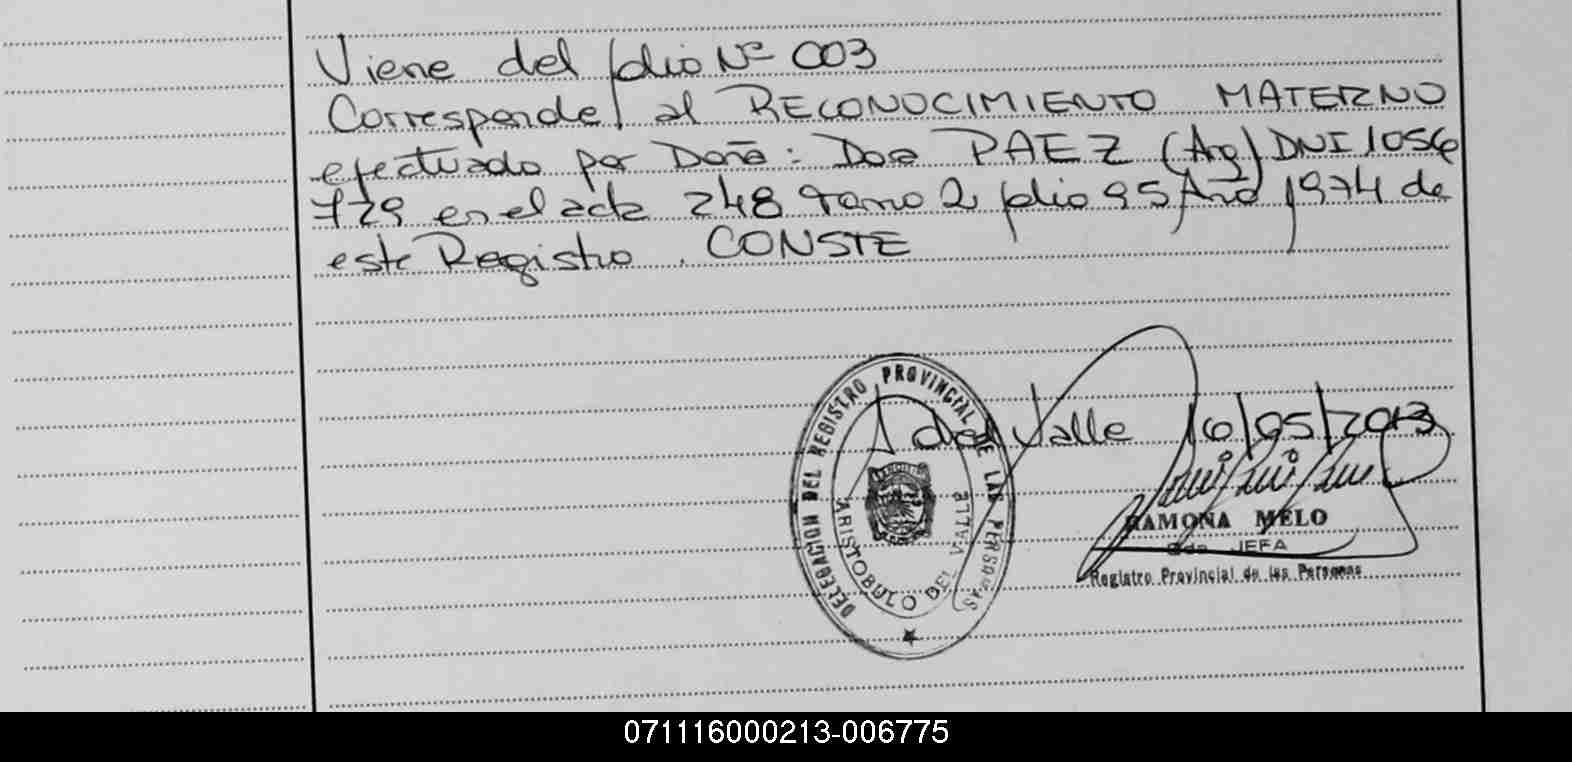 Viene del folio Nº 003
Corresponde al RECONOCIMIENTO MATERNO
efectuado por Doña: Dora PAEZ (Arg) DNI 1056
729 en el acta 248 tomo 2 folio 95 Año 1974 de
este Registro. CONSTE
A del Valle 16/05/2013
DELEGACION DEL REGISTRO PROVINCIAL DE LAS PERSONAS
ARISTOBULO DEL VALLE
RAMONA MELO
JEFA
Registro Provincial de las Personas
071116000213-006775